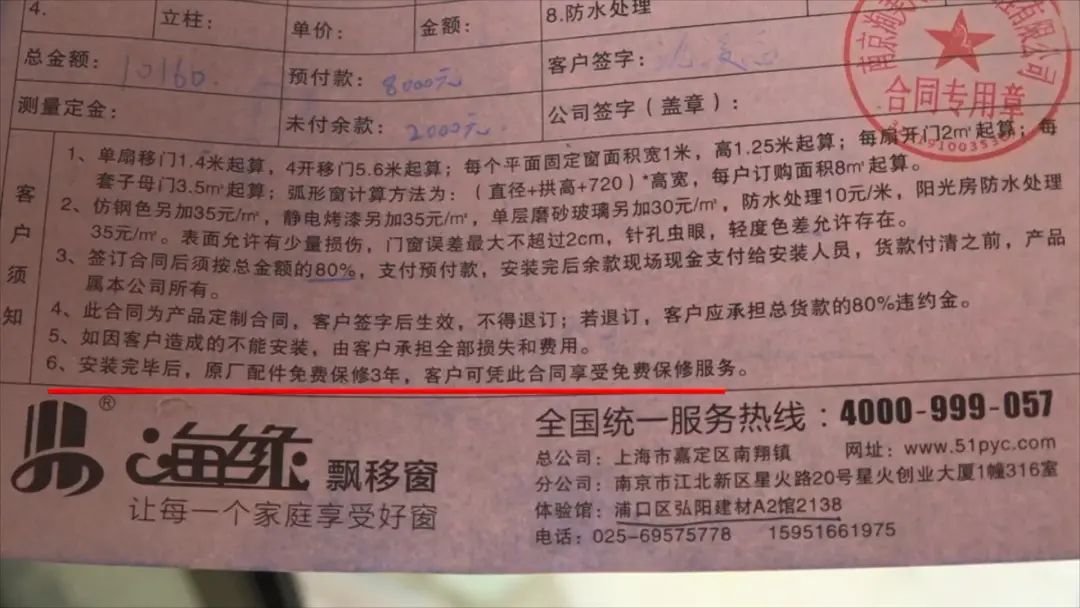 4.
立柱：
单价：
金额：
8.防水处理
总金额：10160
预付款：8000元
客户签字：
测量定金：
未付余款：2000元
公司签字（盖章）：
合同专用章
客户须知
1、单扇移门1.4米起算，4开移门5.6米起算；每个平面固定窗面积宽1米，高1.25米起算；每扇开门2㎡起算；每
套子母门3.5㎡起算；弧形窗计算方法为：（直径+拱高+720）*高宽，每户订购面积8㎡起算。
2、仿钢色另加35元/㎡，静电烤漆另加35元/㎡，单层磨砂玻璃另加30元/㎡，防水处理10元/米，阳光房防水处理
35元/㎡。表面允许有少量损伤，门窗误差最大不超过2cm，针孔虫眼，轻度色差允许存在。
3、签订合同后须按总金额的80%，支付预付款，安装完后余款现场现金支付给安装人员，货款付清之前，产品
属本公司所有。
4、此合同为产品定制合同，客户签字后生效，不得退订；若退订，客户应承担总货款的80%违约金。
5、如因客户造成的不能安装，由客户承担全部损失和费用。
6、安装完毕后，原厂配件免费保修3年，客户可凭此合同享受免费保修服务。
®
海缘 飘移窗
让每一个家庭享受好窗
全国统一服务热线：4000-999-057
总公司：上海市嘉定区南翔镇 网址：www.51pyc.com
分公司：南京市江北新区星火路20号星火创业大厦1幢316室
体验馆：浦口区弘阳建材A2馆2138
电话：025-69575778 15951661975